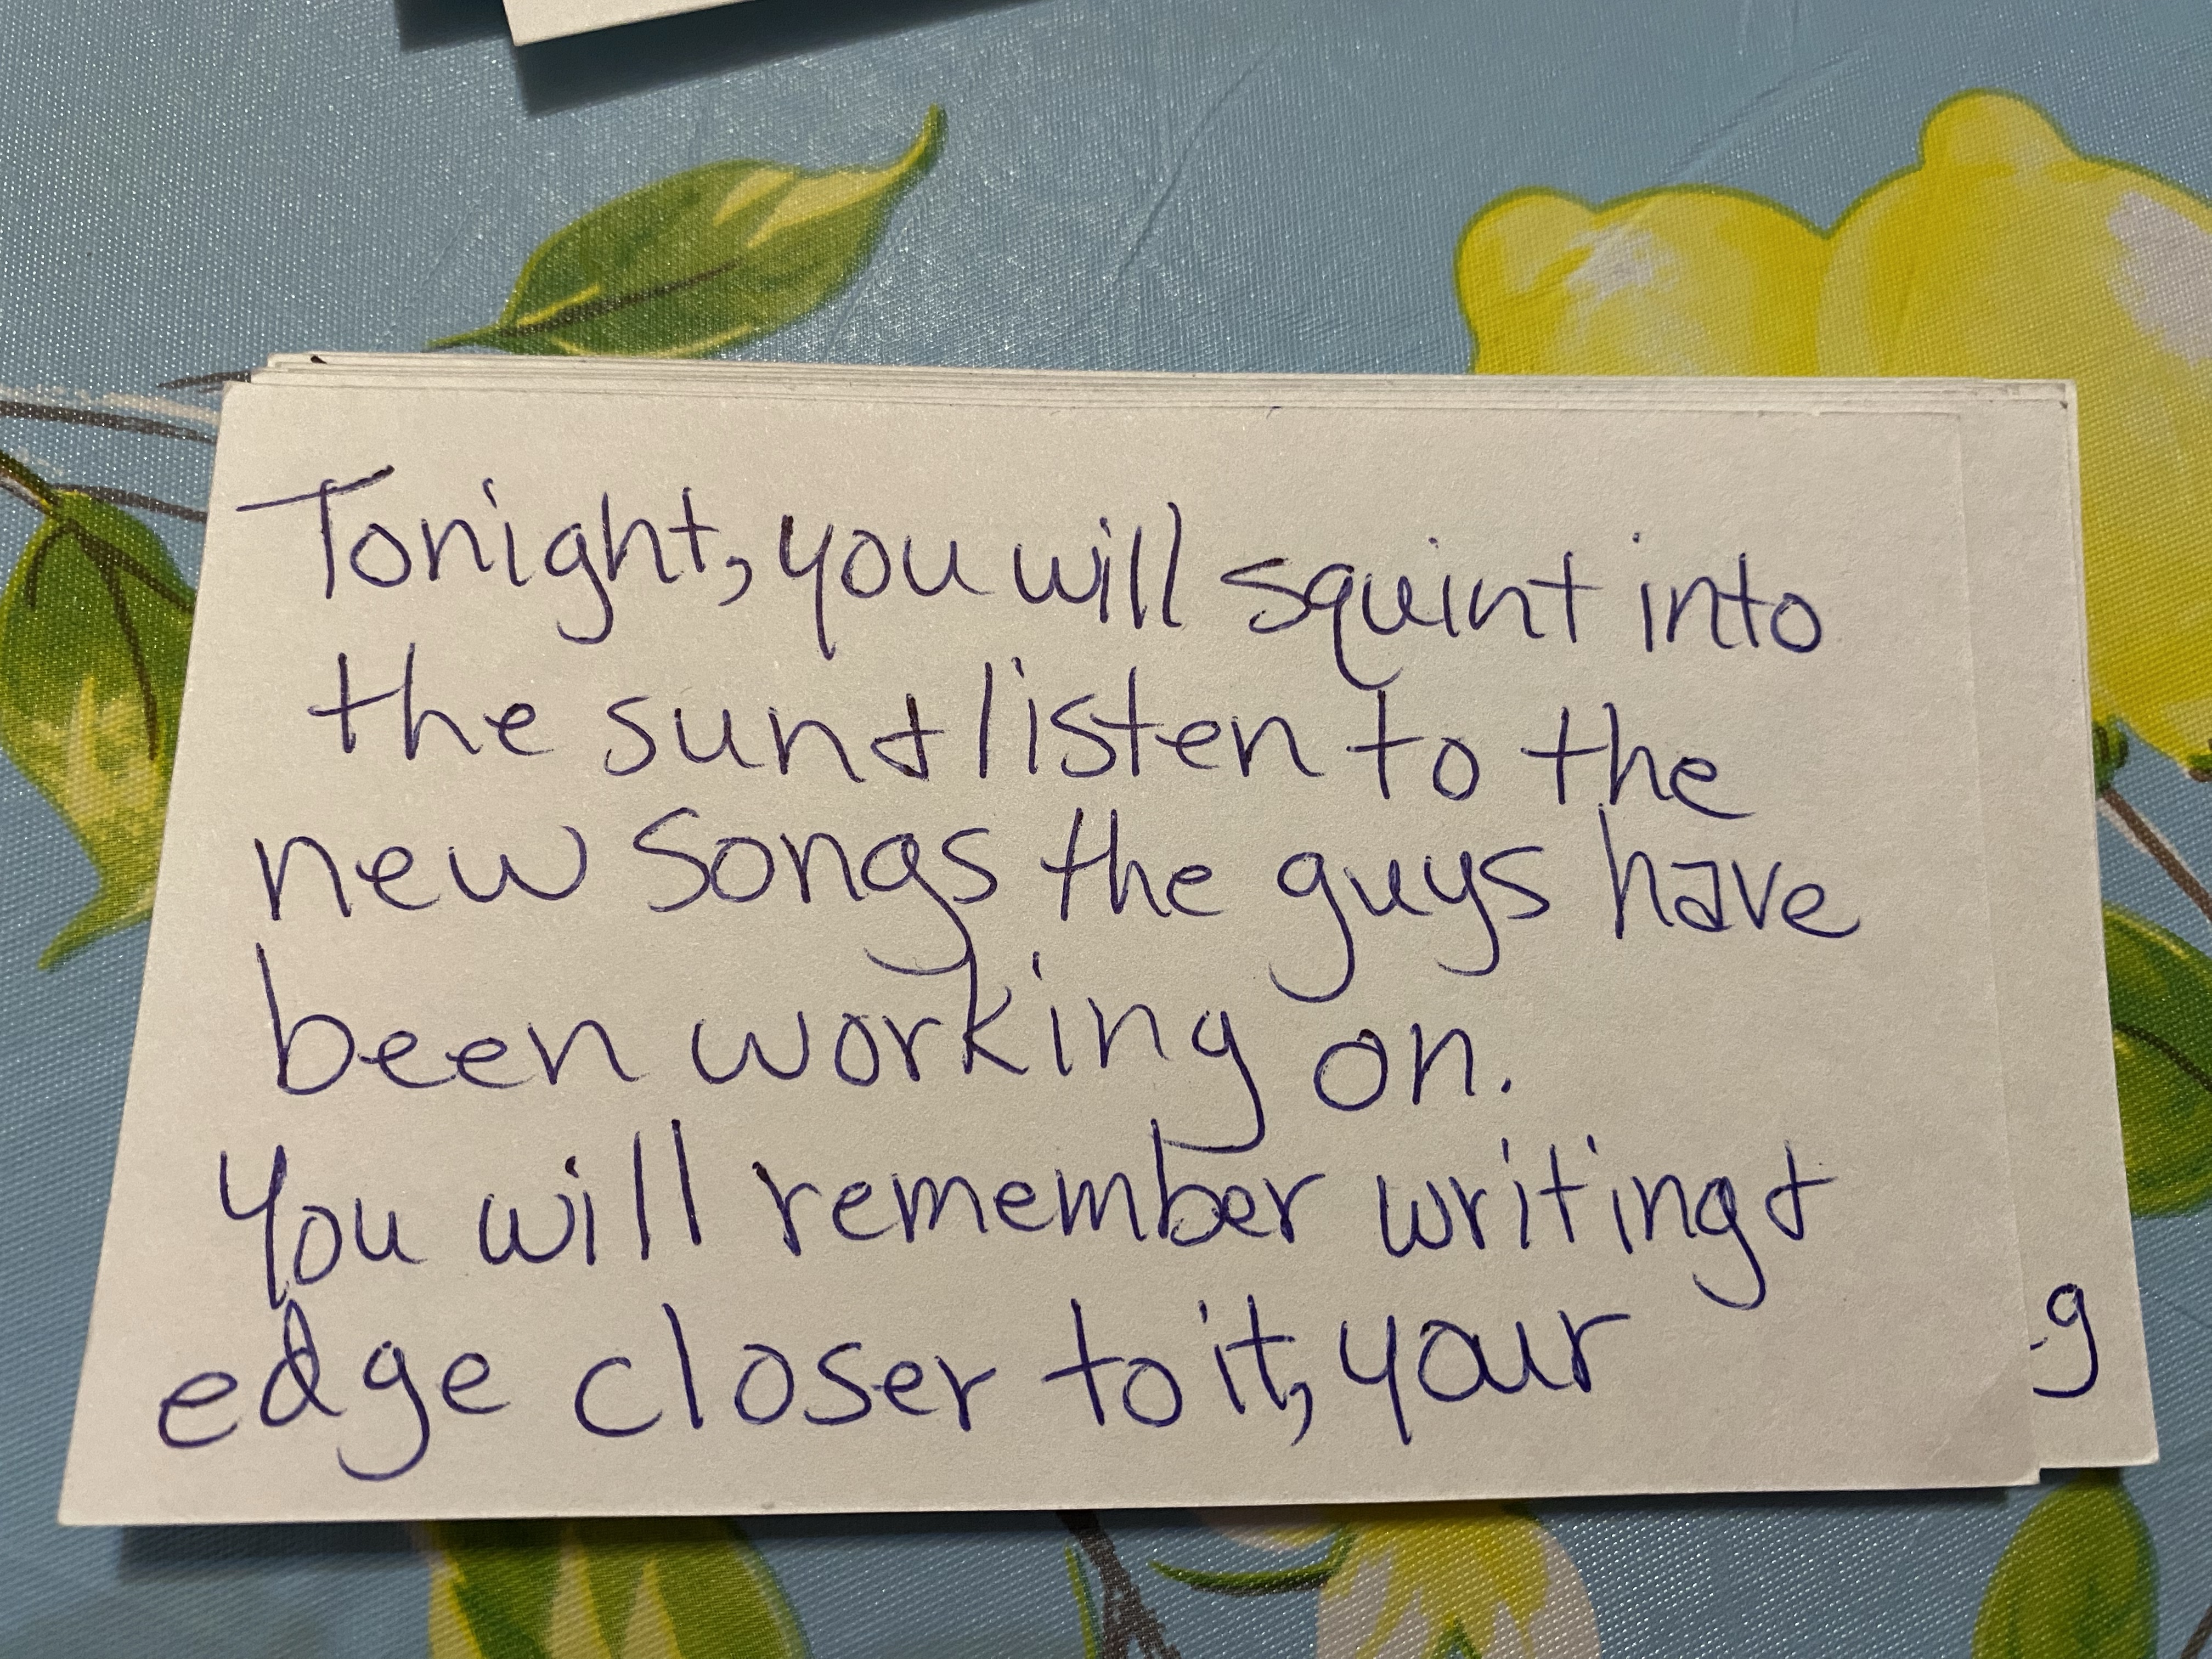 Tonight, you will squint into
the sun + listen to the
new songs the guys have
been working on.
You will remember writing +
edge closer to it, your
g